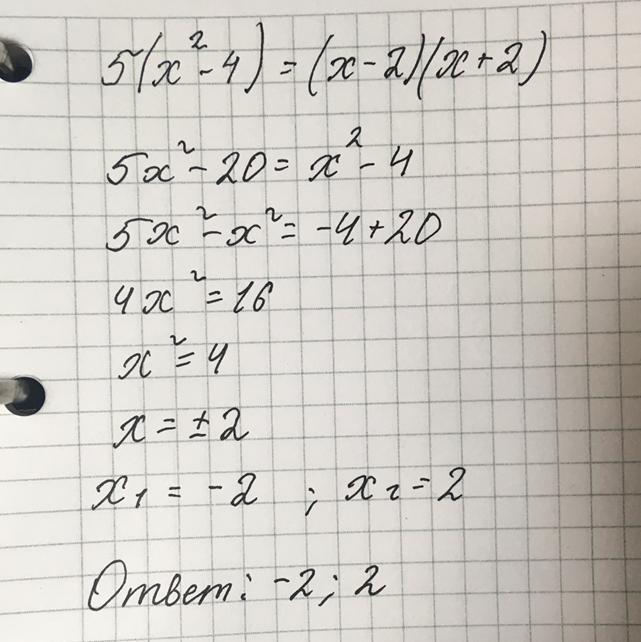 5(x²-4)=(x-2)(x+2)
5x²-20=x²-4
5x²-x²=-4+20
4x²=16
x²=4
x=±2
x₁=-2 ; x₂=2
Ответ: -2; 2